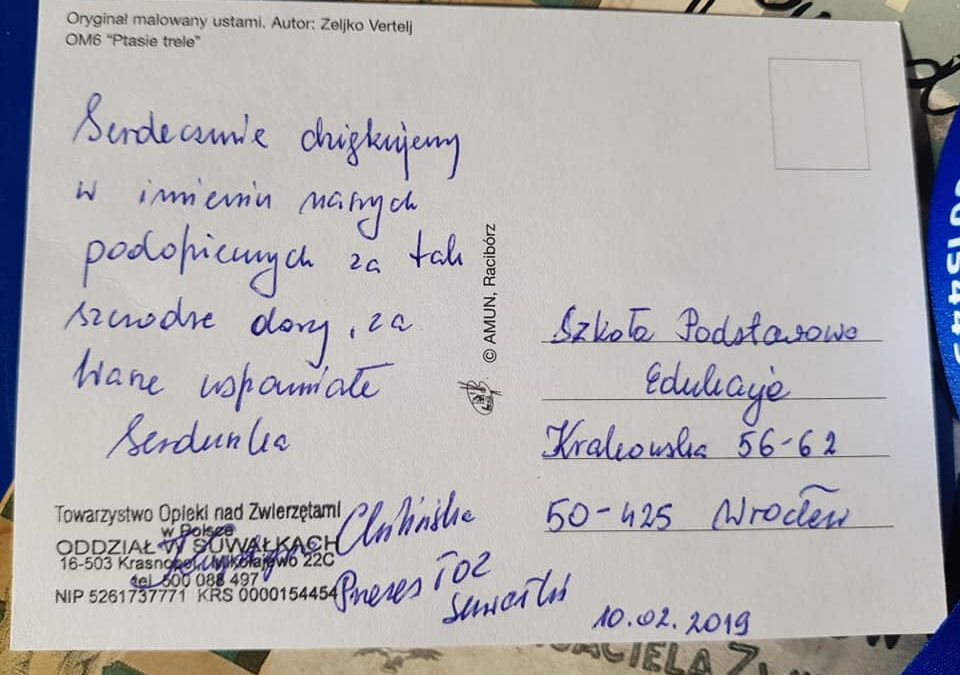 Oryginał malowany ustami. Autor: Zeljko Vertelj
OM6 "Ptasie trele"
Serdecznie dziękujemy
w imieniu naszych
podopiecznych za tak
szczodre dary, za
Wasze wspaniałe
Serduszka
© AMUN, Racibórz
Szkoła Podstawowa
Edukacja
Krakowska 56-62
50-425 Wrocław
Towarzystwo Opieki nad Zwierzętami
w Polsce
ODDZIAŁ W SUWAŁKACH
16-503 Krasnopol, Mikołajewo 22C
tel. 500 088 497
NIP 5261737771 KRS 0000154454
Prezes TOZ
Suwałki
10.02.2019